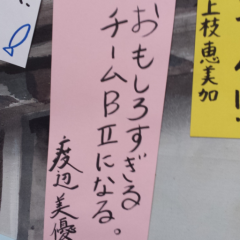 おもしろすぎる
チームBⅡになる。
渡辺美優
上枝恵美加